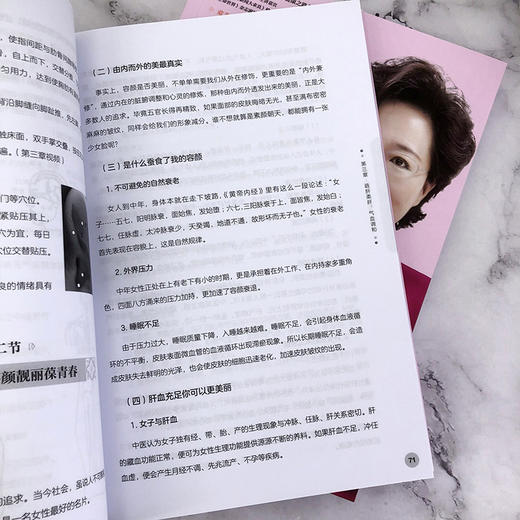 使指间距与肋骨间
，自上而下，交替分推
匀用力，达到使胸腔
背沿脚缝向脚趾推，先左
触床面，双手掌交叠，按
遍。（第三章视频）
门等穴位。
紧贴压其上，
穴为宜，每日
穴位交替贴压。
良的情绪具有
二节
颜靓丽葆青春
的追求。当今社会，虽说人不可貌
一个女性最好的名片。
（二）由内而外的美最真实
事实上，容颜是否美丽，不单单需要我们从外在修饰，更重要的是“内外兼
修”，通过内在的脏腑调整和心灵的修炼，那种由内而外透发出来的美丽，正是大
多数人的追求。毕竟五官长得再精致，如果面部的皮肤晦暗无光，甚至满布密密
麻麻的皱纹，同样会给我们的形象减分。谁不想就算是素颜朝天，都能拥有一张
少女脸呢？
（三）是什么蚕食了我的容颜
1. 不可避免的自然衰老
女人到中年，身体本就在走下坡路，《黄帝内经》里有这么一段论述：“女子
……五七，阳明脉衰，面始焦，发始堕；六七，三阳脉衰于上，面皆焦，发始白；
七七，任脉虚，太冲脉衰少，天癸竭，地道不通，故形坏而无子也。”女性的衰老
首先表现在容貌上，这是自然规律。
2. 外界压力
中年女性正处在上有老下有小的时期，更是承担着在外工作、在内持家多重角
色，四面八方涌来的压力加持，更加速了容颜衰退。
3. 睡眠不足
由于压力过大，睡眠质量下降，入睡越来越难。睡眠不足，会引起身体血液循
环的不平衡，皮肤表面微血管的血液循环出现滞瘀现象。所以长期睡眠不足，会造
成皮肤失去鲜明的光泽，也会使皮肤的细胞迅速老化，加速皮肤皱纹的出现。
（四）肝血充足你可以更美丽
1. 女子与肝血
中医认为女子独有经、带、胎、产的生理现象与冲脉、任脉、肝关系密切。肝
的藏血功能正常，便可为女性生理功能提供源源不断的养料。如果肝血不足，冲任
血虚，便会产生月经不调、先兆流产、不孕等疾病。
第三章·疏肝柔肝·气血调和
71